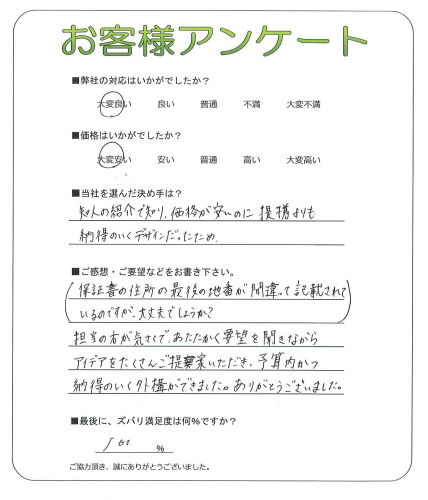 お客様アンケート
■弊社の対応はいかがでしたか？
大変良い 良い 普通 不満 大変不満
■価格はいかがでしたか？
大変安い 安い 普通 高い 大変高い
■当社を選んだ決め手は？
知人の紹介で知り、価格が安いのに提携よりも
納得のいくデザインだったため。
■ご感想・ご要望などをお書き下さい。
(保証書の住所の最後の地番が間違って記載されて
いるのですが、大丈夫でしょうか?)
担当の方が気さくで、あたたかく要望を聞きながら
アイデアをたくさんご提案いただき、予算内かつ
納得のいく外構ができました。ありがとうございました。
■最後に、ズバリ満足度は何％ですか？
％
ご協力頂き、誠にありがとうございました。